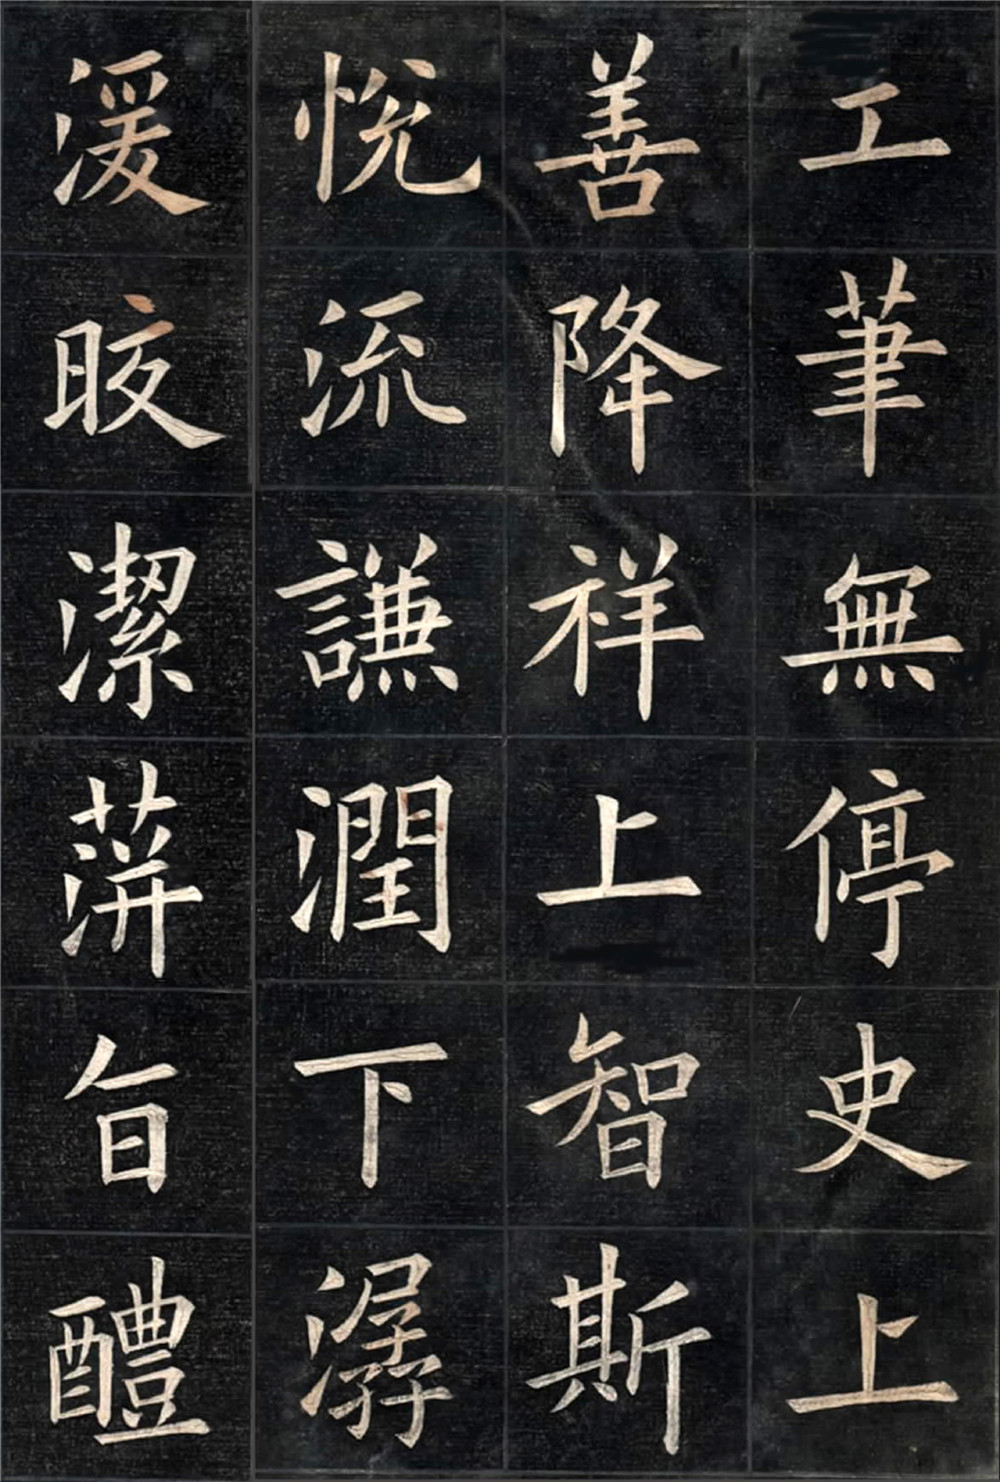 工筆無停史上
善降祥上智斯
悦流謙潤下潺
湲晈潔蓱旨醴